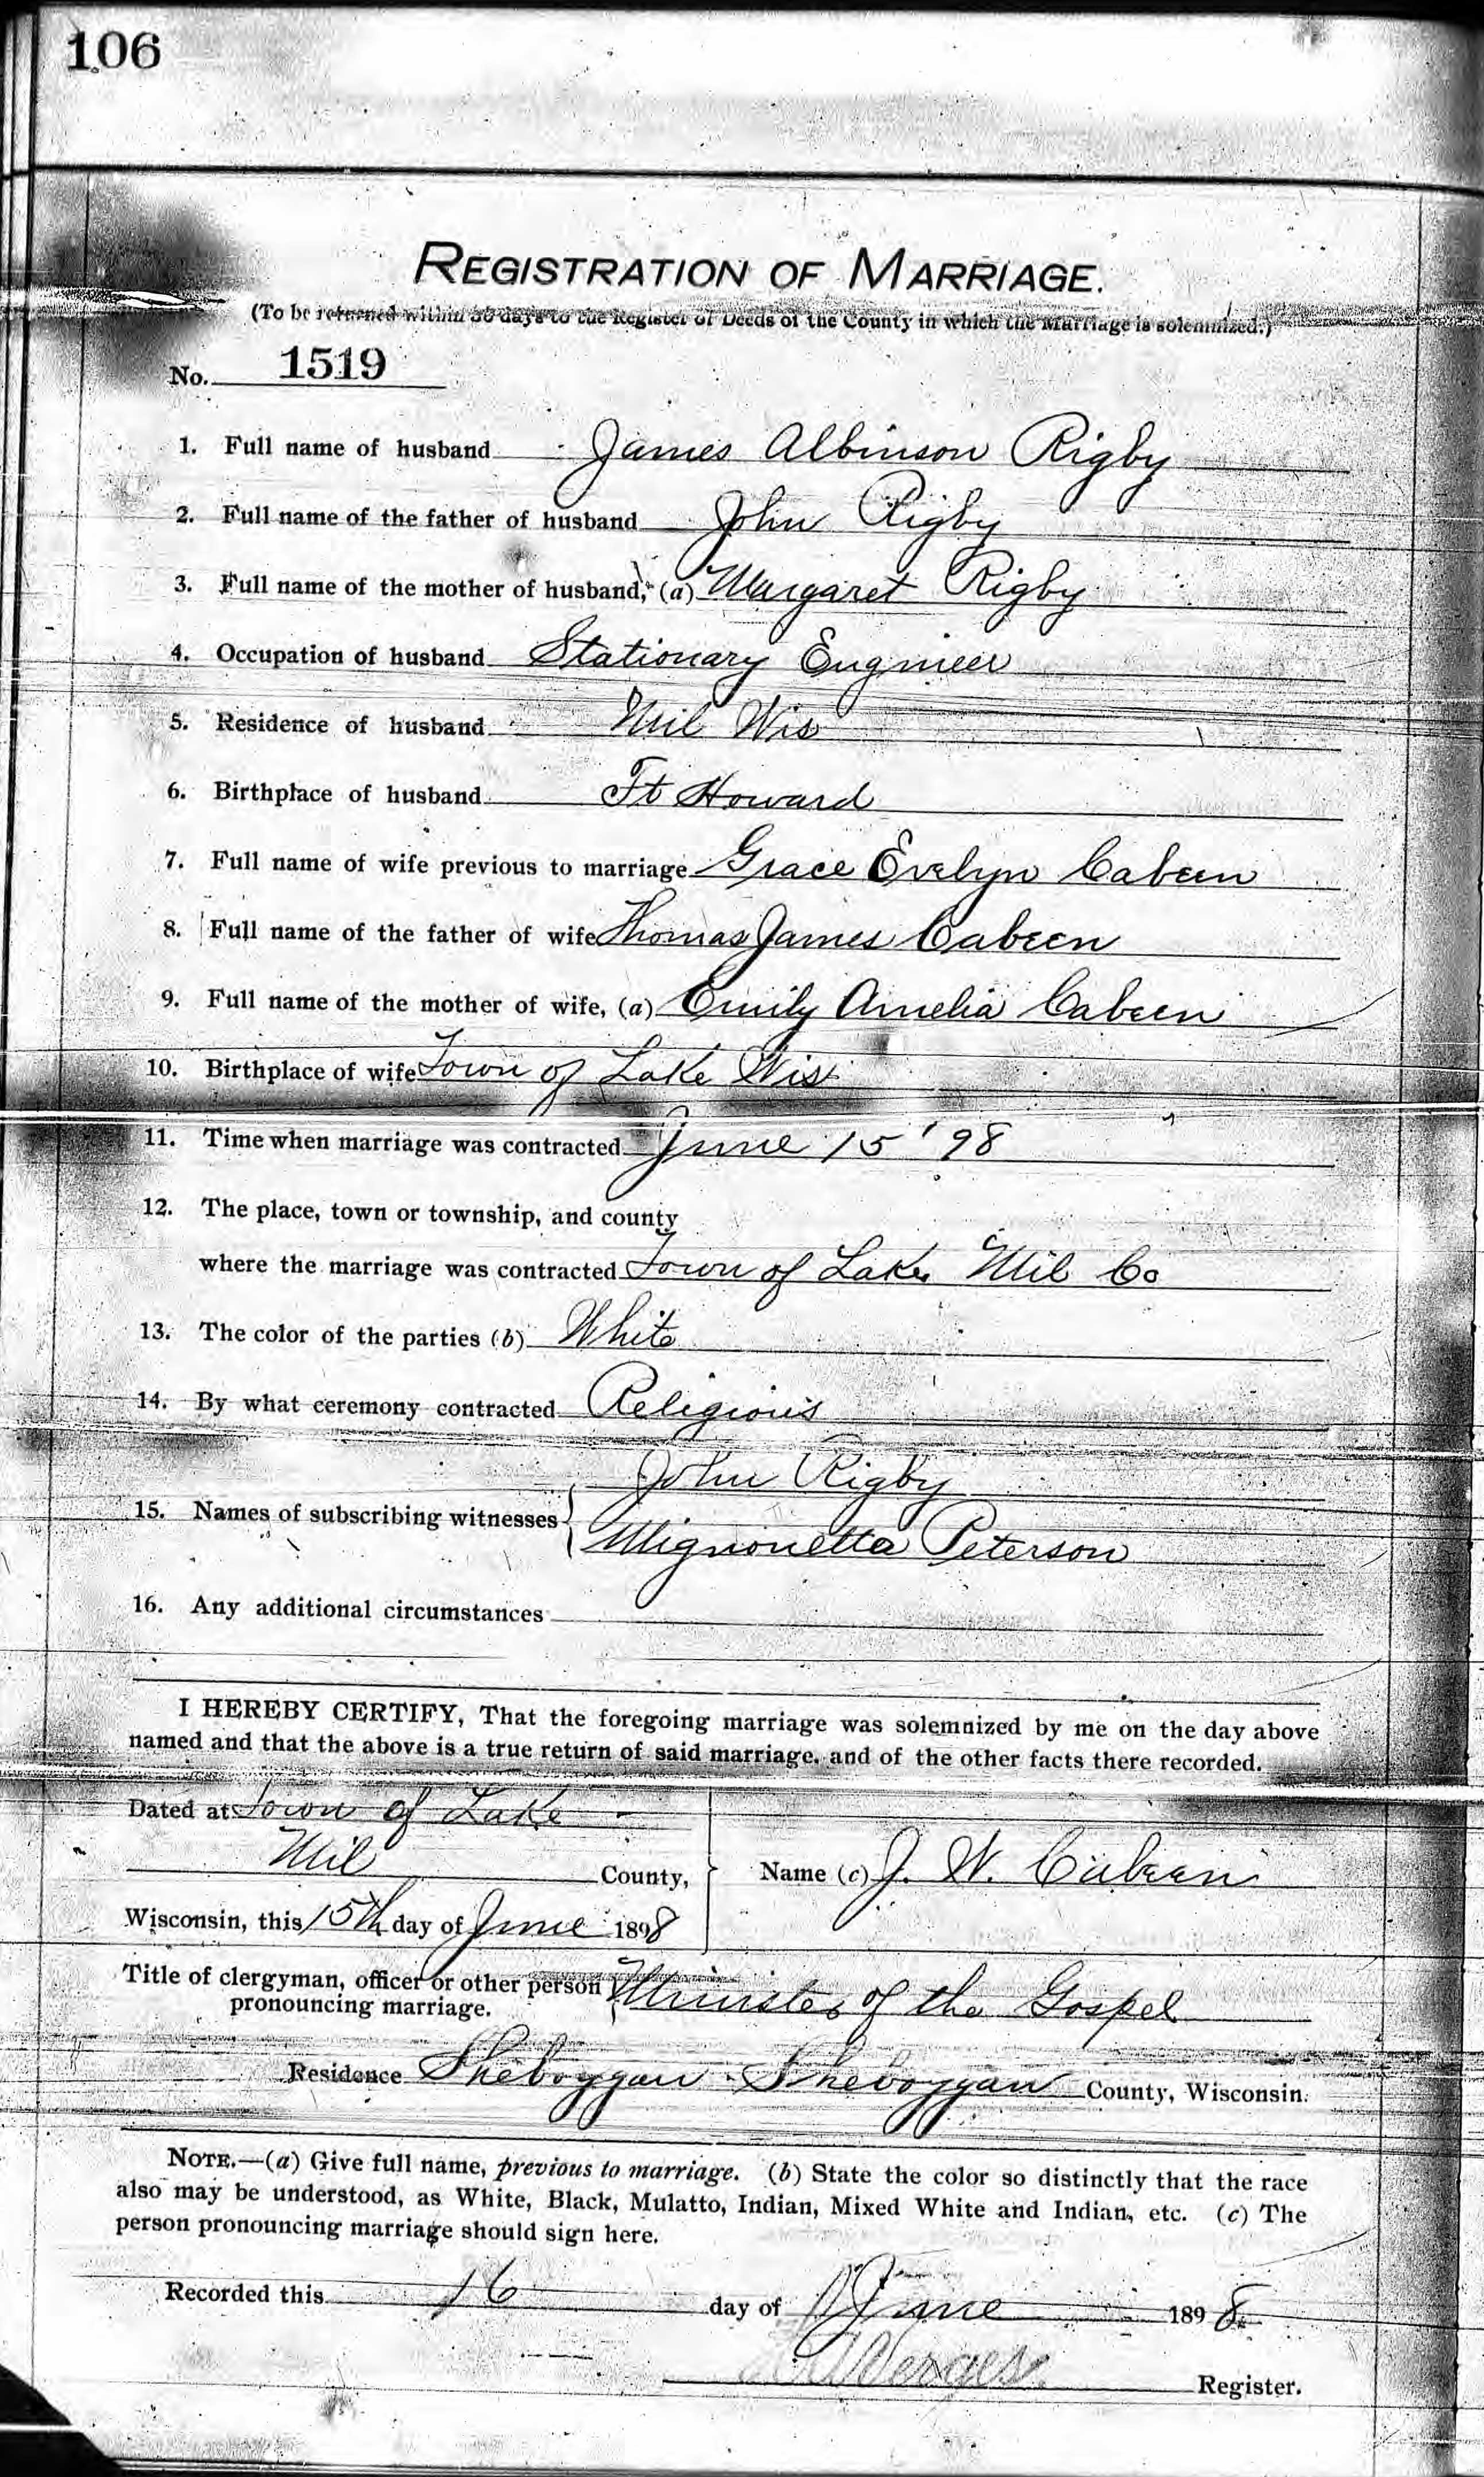 106
REGISTRATION OF MARRIAGE.
(To be returned within 30 days to the Register of Deeds of the County in which the Marriage is solemnized.)
No. 1519
1. Full name of husband James Albinson Rigby
2. Full name of the father of husband John Rigby
3. Full name of the mother of husband, (a) Margaret Rigby
4. Occupation of husband Stationary Engineer
5. Residence of husband Mil Wis
6. Birthplace of husband Ft Howard
7. Full name of wife previous to marriage Grace Evelyn Cabeen
8. Full name of the father of wife Thomas James Cabeen
9. Full name of the mother of wife, (a) Emily Amelia Cabeen
10. Birthplace of wife Town of Lake Wis
11. Time when marriage was contracted June 15 '98
12. The place, town or township, and county
where the marriage was contracted Town of Lake Mil Co
13. The color of the parties (b) White
14. By what ceremony contracted Religious
John Rigby
15. Names of subscribing witnesses
Mignonetta Peterson
16. Any additional circumstances
I HEREBY CERTIFY, That the foregoing marriage was solemnized by me on the day above
named and that the above is a true return of said marriage, and of the other facts there recorded.
Dated at Town of Lake
Mil County, Name (c) J. W. Cabeen
Wisconsin, this 15th day of June 1898
Title of clergyman, officer or other person
pronouncing marriage. Minister of the Gospel
Residence Sheboygan Sheboygan County, Wisconsin.
NOTE.—(a) Give full name, previous to marriage. (b) State the color so distinctly that the race
also may be understood, as White, Black, Mulatto, Indian, Mixed White and Indian, etc. (c) The
person pronouncing marriage should sign here.
Recorded this 16 day of June 1898
Register.